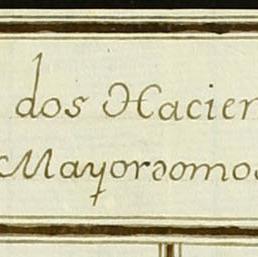 dos Hacien
Mayordomos